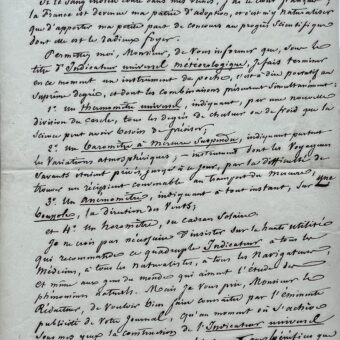 la France est devenue ma patrie d'adoption, et il est naturel
que d'apporter ma petite part de concours au progrès scientifique
dont elle est le radieux foyer.
Permettez moi, Monsieur, de vous informer que, sous le
titre d'Indicateur universel météorologique, je fais terminer
en ce moment un instrument de poche, c'est à dire portatif au
suprême degré, et dont les combinaisons présentent simultanément:
1° Un thermomètre universel, indiquant, par une nouvelle
division du cercle, tous les degrés de chaleur ou de froid que la
science peut avoir besoin de préciser;
2° Un baromètre à Mercure suspendu, indiquant partout
les variations atmosphériques; — instrument dont les voyageurs
savants étaient privés jusqu'à ce jour, par la difficulté de
trouver un récipient convenable au transport du mercure;
3° Un Anémomètre, indiquant à tout instant, sur une
boussole, la direction du Vent;
et 4° Un Horomètre, ou cadran Solaire
Je ne crois pas nécessaire d'insister sur la haute utilité
qui recommande ce quadruple Indicateur à tous les
Médecins, à tous les Naturalistes, à tous les Navigateurs,
et même aux gens du monde qui aiment l'étude des
phénomènes naturels. Mais je vous prie, Monsieur le
Rédacteur, de vouloir bien faire connaître par l'éminente
publicité de votre Journal, qu'au moment où s'achève
sous mes yeux la construction de l'Indicateur universel
que